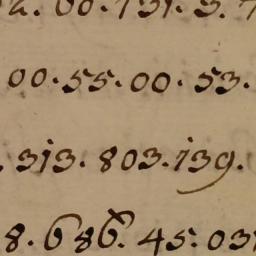 a. 00. 131. 3.
00. 55. 00. 53.
. 313. 803. 139.
8. 686. 45. 031